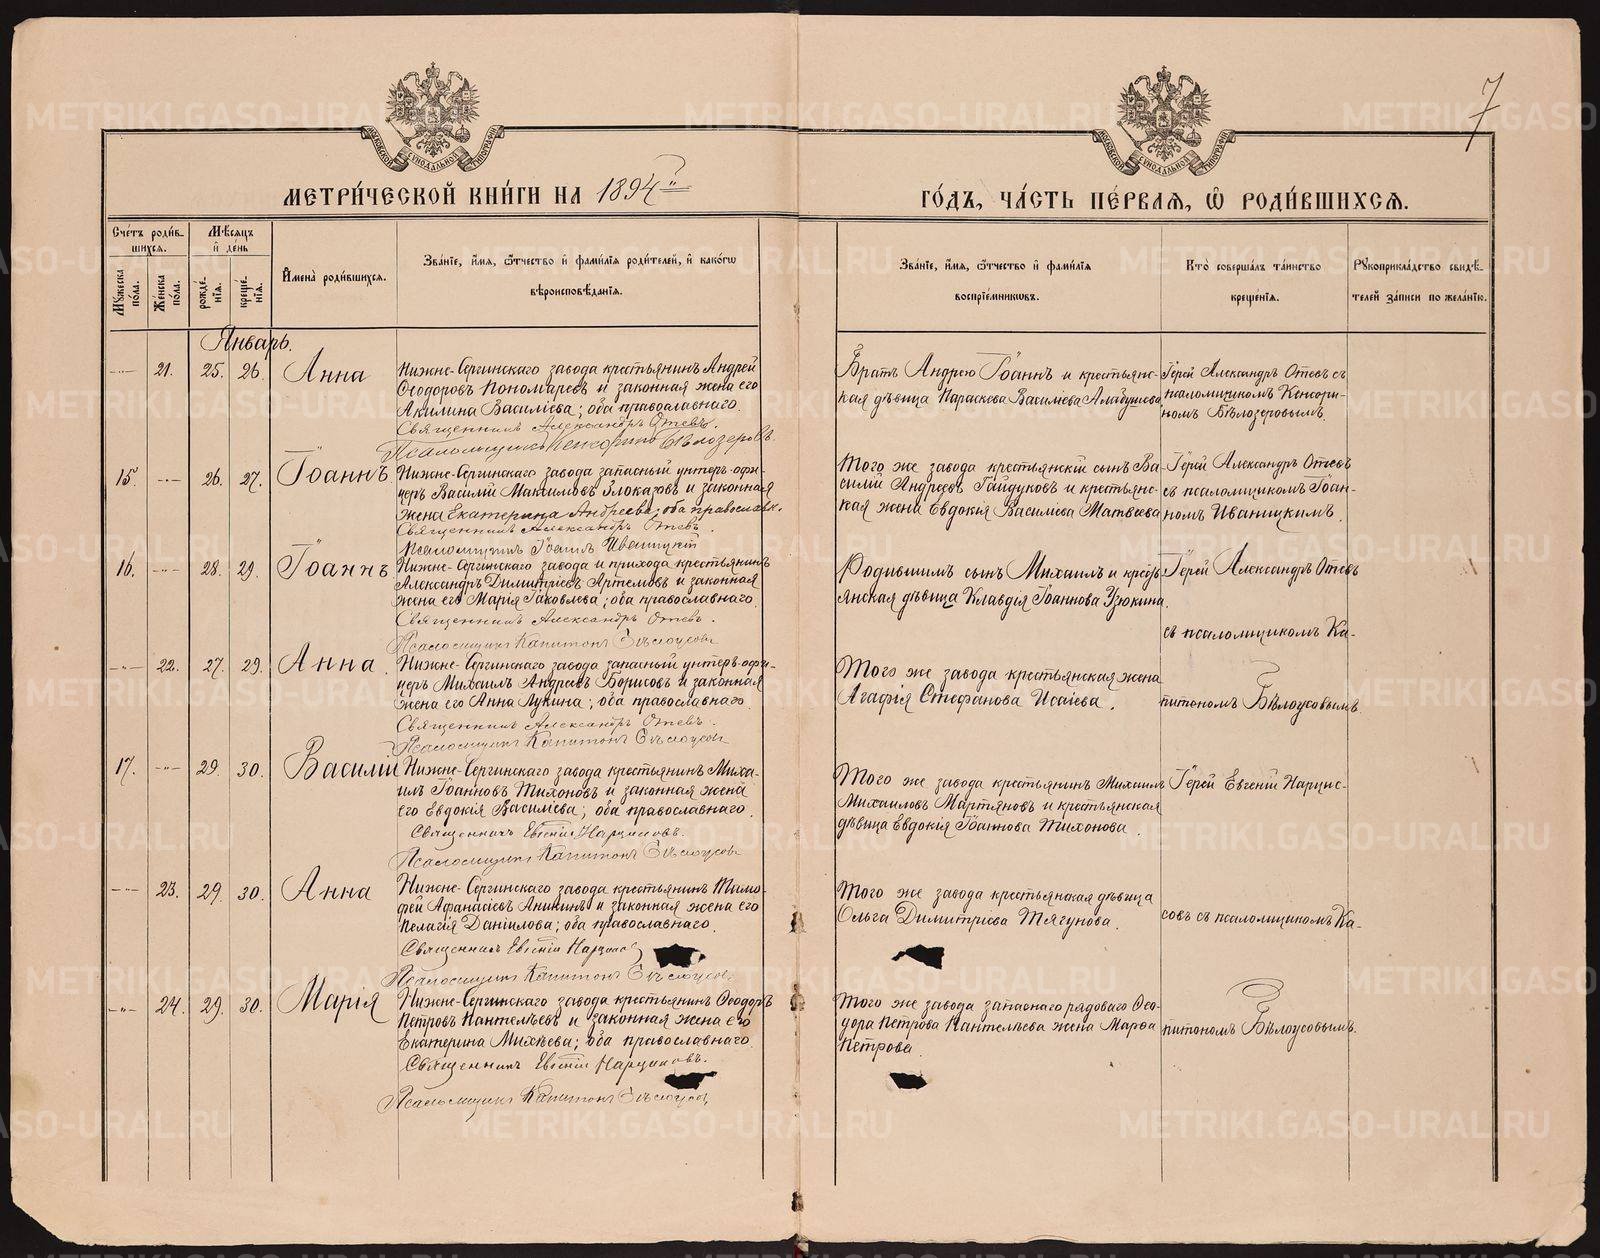 7
МЕТРИ́ЧЕСКОЙ КНИ́ГИ НА 1894й
ГО́ДЪ, ЧА́СТЬ ПЕ́РВАѦ, Ѡ҆ РОДИ́ВШИХСѦ.
Сче́тъ роди́в-
шихся.
Мѣ́сяцъ
и҆ де́нь
Му́жеска по́ла.
Же́нска по́ла.
рожде́нїя.
креще́нїя.
И҆мена̀ роди́вшихся.
Зва́нїе, и҆́мя, ѻ҆́тчество и҆ фами́лїя роди́телей, и҆ како́гѡ
вѣроисповѣ́данїя.
Зва́нїе, и҆́мя, ѻ҆́тчество и҆ фами́лїя
воспрїе́мниковъ.
Кто̀ соверша́лъ та́инство
креще́нїя.
Рꙋкоприкла́дство свидѣ́-
телей за́писи по жела́нїю.
Январь.
-„- 21. 25. 26. Анна
Нижне-Сергинскаго завода крестьянинъ Андрей
Ѳеодоровъ Пономаревъ и законная жена его
Акилина Василіева; оба православнаго.
Священникъ Александръ Отевъ.
Псаломщикъ Кенсоринъ Бѣлозеровъ.
Братъ Андрею Іоаннъ и крестьянс-
кая дѣвица Параскева Василіева Алабушева
Іерей Александръ Отевъ съ
псаломщикомъ Кенсори-
номъ Бѣлозеровымъ.
15. -„- 26. 27. Іоаннъ
Нижне-Сергинскаго завода запасный унтеръ-офи-
церъ Василій Максимовъ Злоказовъ и законная
жена Екатерина Андреева; оба православн.
Священникъ Александръ Отевъ.
Псаломщикъ Іоаннъ Иваницкій
Того же завода крестьянскій сынъ Ва-
силій Андреевъ Гайдуковъ и крестьянс-
кая жена Евдокія Василіева Матвеева
Іерей Александръ Отевъ
съ псаломщикомъ Іоан-
номъ Иваницкимъ.
16. -„- 28. 29. Іоаннъ
Нижне-Сергинскаго завода и прихода крестьянинъ
Александръ Димитріевъ Артемовъ и законная
жена его Марія Іаковлева; оба православнаго.
Священникъ Александръ Отевъ.
Псаломщикъ Капитонъ Бѣлоусовъ
Родившимъ сынъ Михаилъ и кресть-
янская дѣвица Клавдія Іоаннова Узюкина.
Іерей Александръ Отевъ
съ псаломщикомъ Ка-
-„- 22. 27. 29. Анна.
Нижне-Сергинскаго завода запасный унтеръ-офи-
церъ Михаилъ Андреевъ Борисовъ и законная
жена его Анна Лукина; оба православнаго.
Священникъ Александръ Отевъ.
Псаломщикъ Капитонъ Бѣлоусовъ
Того же завода крестьянская жена
Агафія Стефанова Исаіева.
питономъ Бѣлоусовымъ
17. -„- 29. 30. Василій
Нижне-Сергинскаго завода крестьянинъ Миха-
илъ Іоанновъ Тихоновъ и законная жена
его Евдокія Василіева; оба православнаго.
Священникъ Евгеній Нарциссовъ.
Псаломщикъ Капитонъ Бѣлоусовъ
Того же завода крестьянинъ Михаилъ
Михаиловъ Мартяновъ и крестьянская
дѣвица Евдокія Іоаннова Тихонова.
Іерей Евгеній Нарцис-
-„- 23. 29. 30. Анна
Нижне-Сергинскаго завода крестьянинъ Тимо-
фей Афанасіевъ Аникинъ и законная жена его
Пелагія Даніилова; оба православнаго.
Священникъ Евгеній
Псаломщикъ Капитонъ Бѣлоусовъ
Того же завода крестьянская дѣвица
Ольга Димитріева Тягунова.
совъ съ псаломщикомъ Ка-
-„- 24. 29. 30. Марія
Нижне-Сергинскаго завода крестьянинъ Ѳеодоръ
Петровъ Пантелѣевъ и законная жена его
Екатерина Михѣева; оба православнаго.
Священникъ Евгеній Нарциссовъ.
Псаломщикъ Капитонъ Бѣлоусовъ
Того же завода запаснаго рядоваго Ѳео-
дора Петрова Пантелѣева жена Марѳа
Петрова.
питономъ Бѣлоусовымъ.
METRIKI.GASO-URAL.RU